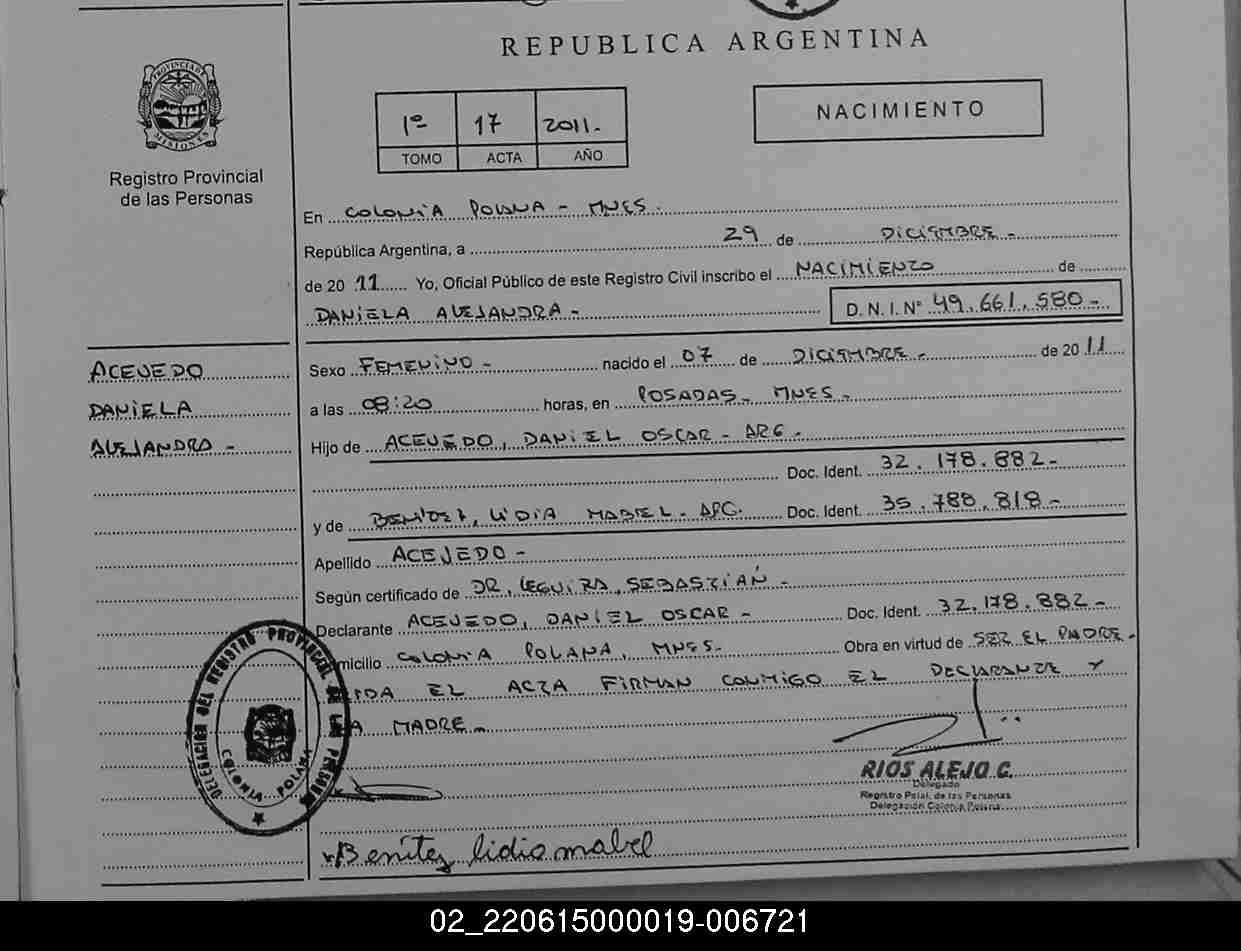 REPUBLICA ARGENTINA
PROVINCIA DE MISIONES
Registro Provincial
de las Personas
1º 17 2011.
TOMO ACTA AÑO
NACIMIENTO
En COLONIA POLANA - MNES.
República Argentina, a 29 de DICIEMBRE -
de 2011 Yo, Oficial Público de este Registro Civil inscribo el NACIMIENTO de
DANIELA ALEJANDRA - D. N. I. Nº 49.661.580 -
ACEVEDO
DANIELA
ALEJANDRA -
Sexo FEMENINO - nacido el 07 de DICIEMBRE - de 2011
a las 08:20 horas, en POSADAS - MNES -
Hijo de ACEVEDO, DANIEL OSCAR - ARG -
Doc. Ident. 32.178.882 -
y de BENITEZ, LIDIA MABEL - ARG. Doc. Ident. 35.788.818 -
Apellido ACEVEDO -
Según certificado de DR. LEGUIRA, SEBASTIÁN -
Declarante ACEVEDO, DANIEL OSCAR - Doc. Ident. 32.178.882 -
micilio COLONIA POLANA, MNES. Obra en virtud de SER EL PADRE -
IDA EL ACTA FIRMAN CONMIGO EL DECLARANTE Y
A MADRE -
DELEGACIÓN DEL REGISTRO PROVINCIAL DE LAS PERSONAS
COLONIA POLANA
RIOS ALEJO C.
Delegado
Registro Pcial. de las Personas
Delegación Colonia Polana
Benítez lidia mabel
02_220615000019-006721